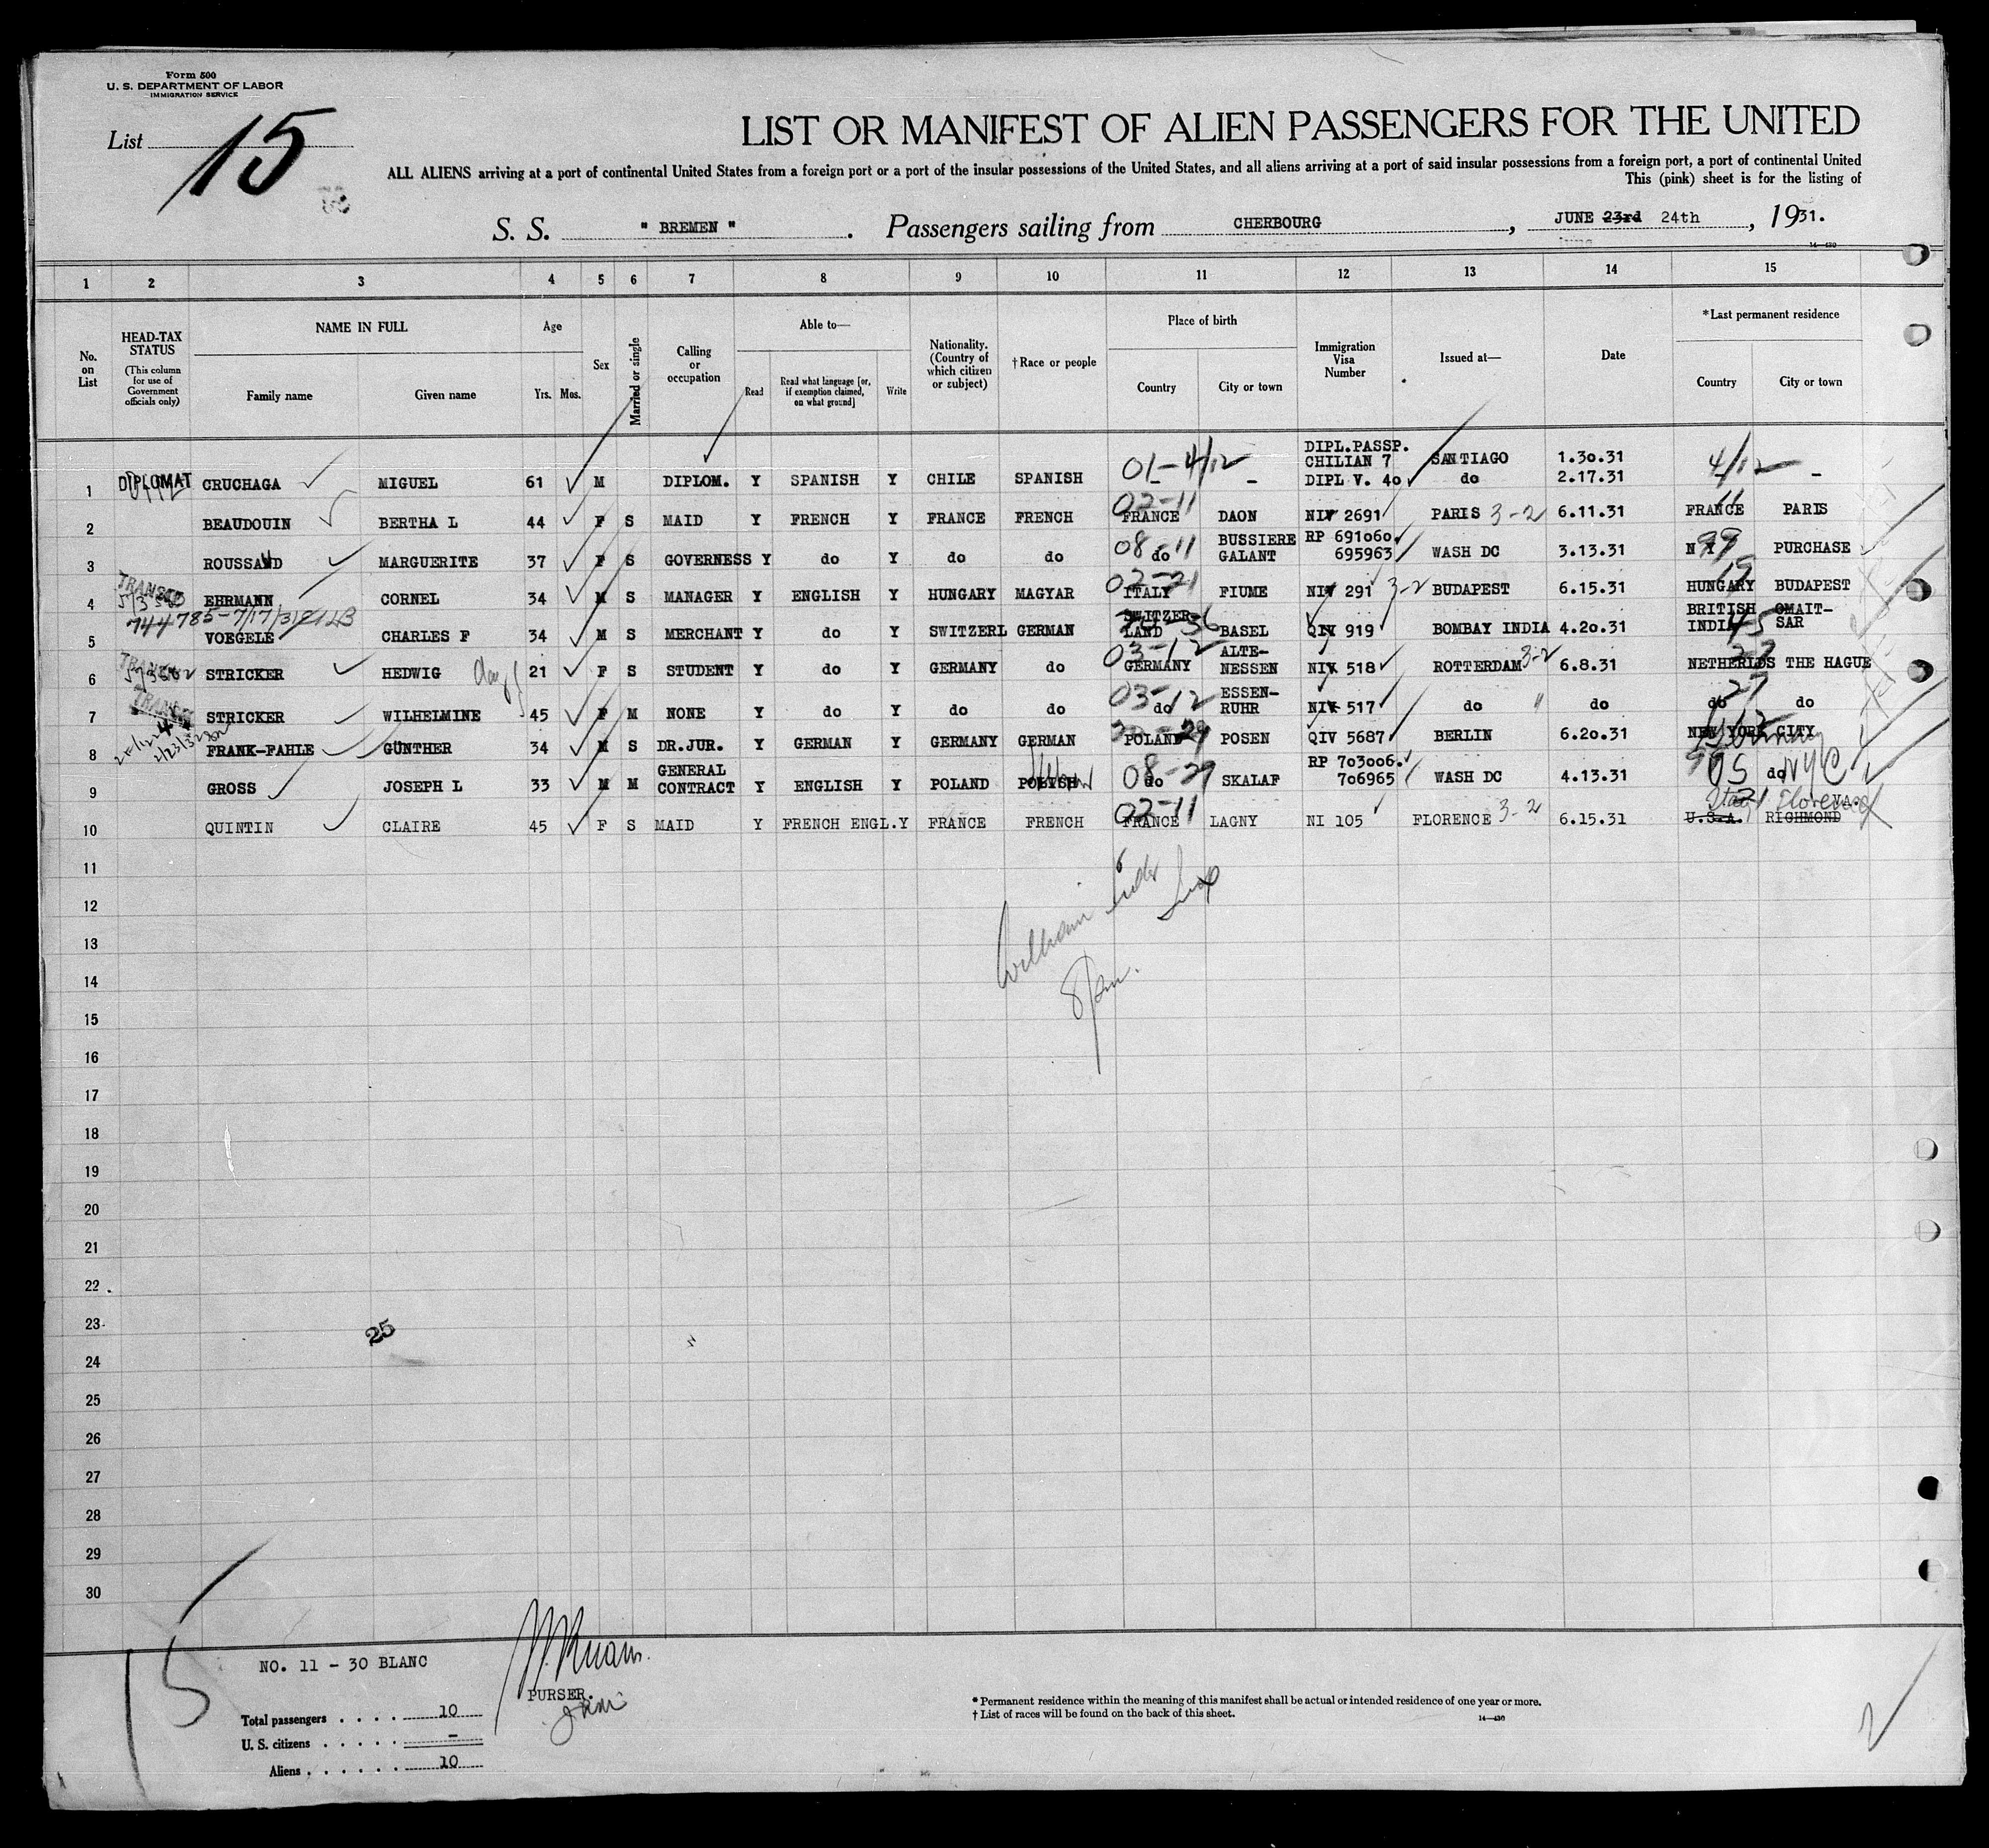 Form 500
U. S. DEPARTMENT OF LABOR
IMMIGRATION SERVICE
List 15
LIST OR MANIFEST OF ALIEN PASSENGERS FOR THE UNITED
ALL ALIENS arriving at a port of continental United States from a foreign port or a port of the insular possessions of the United States, and all aliens arriving at a port of said insular possessions from a foreign port, a port of continental United
This (pink) sheet is for the listing of
S. S. " BREMEN " . Passengers sailing from CHERBOURG , JUNE 23rd 24th , 1931.
14—430
1 2 3 4 5 6 7 8 9 10 11 12 13 14 15
No. on List
HEAD-TAX STATUS (This column for use of Government officials only)
NAME IN FULL
Family name Given name
Age
Yrs. Mos.
Sex
Married or single
Calling or occupation
Able to—
Read
Read what language [or, if exemption claimed, on what ground]
Write
Nationality. (Country of which citizen or subject)
†Race or people
Place of birth
Country City or town
Immigration Visa Number
Issued at—
Date
*Last permanent residence
Country City or town
DIPL.PASSP.
CHILIAN 7 SANTIAGO 1.30.31
1 DIPLOMAT CRUCHAGA MIGUEL 61 M DIPLOM. Y SPANISH Y CHILE SPANISH 01-4/12 - - DIPL V. 40 do 2.17.31 4/12 -
2 BEAUDOUIN BERTHA L 44 F S MAID Y FRENCH Y FRANCE FRENCH 02-11 FRANCE DAON NIV 2691 PARIS 3-2 6.11.31 11 FRANCE PARIS
3 ROUSSAUD MARGUERITE 37 F S GOVERNESS Y do Y do do 08-11 do BUSSIERE GALANT RP 691060 695963 WASH DC 3.13.31 99 N Y PURCHASE
4 EHRMANN CORNEL 34 M S MANAGER Y ENGLISH Y HUNGARY MAGYAR 02-21 ITALY FIUME NIV 291 3-2 BUDAPEST 6.15.31 HUNGARY BUDAPEST
744785-7/17/31
5 VOEGELE CHARLES F 34 M S MERCHANT Y do Y SWITZERL GERMAN SWITZER-LAND 36 BASEL QIV 919 BOMBAY INDIA 4.20.31 BRITISH INDIA 45 OMAIT-SAR
6 STRICKER HEDWIG 21 F S STUDENT Y do Y GERMANY do 03-12 GERMANY ALTE-NESSEN NIV 518 ROTTERDAM 3-2 6.8.31 NETHERLDS THE HAGUE
7 STRICKER WILHELMINE 45 F M NONE Y do Y do do 03-12 do ESSEN-RUHR NIV 517 do " do do 27 do
8 FRANK-FAHLE GÜNTHER 34 M S DR.JUR. Y GERMAN Y GERMANY GERMAN 29 POLAND POSEN QIV 5687 BERLIN 6.20.31 NEW YORK CITY Germany
9 GROSS JOSEPH L 33 M M GENERAL CONTRACT Y ENGLISH Y POLAND POLISH Hebrew 08-29 do SKALAF RP 703006. 706965 WASH DC 4.13.31 99 US do NYC
10 QUINTIN CLAIRE 45 F S MAID Y FRENCH ENGL. Y FRANCE FRENCH 02-11 FRANCE LAGNY NI 105 FLORENCE 3-2 6.15.31 Italy Florence U.S.A. RICHMOND VA.
11
12
13
14
15
16
17
18
19
20
21
22
23
24
25
26
27
28
29
30
William
8 pm.
25
15
NO. 11 - 30 BLANC
PURSER.
Total passengers . . . . 10
U. S. citizens . . . . . -
Aliens . . . . . . 10
* Permanent residence within the meaning of this manifest shall be actual or intended residence of one year or more.
† List of races will be found on the back of this sheet.
14—430
2